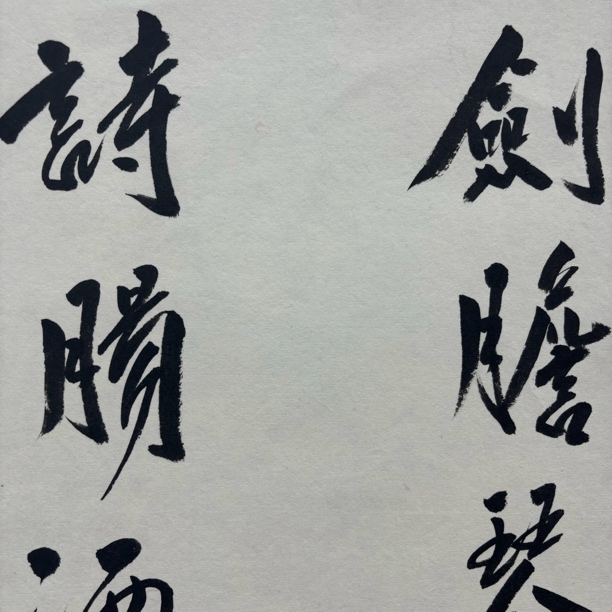 劍膽琴
詩腸酒